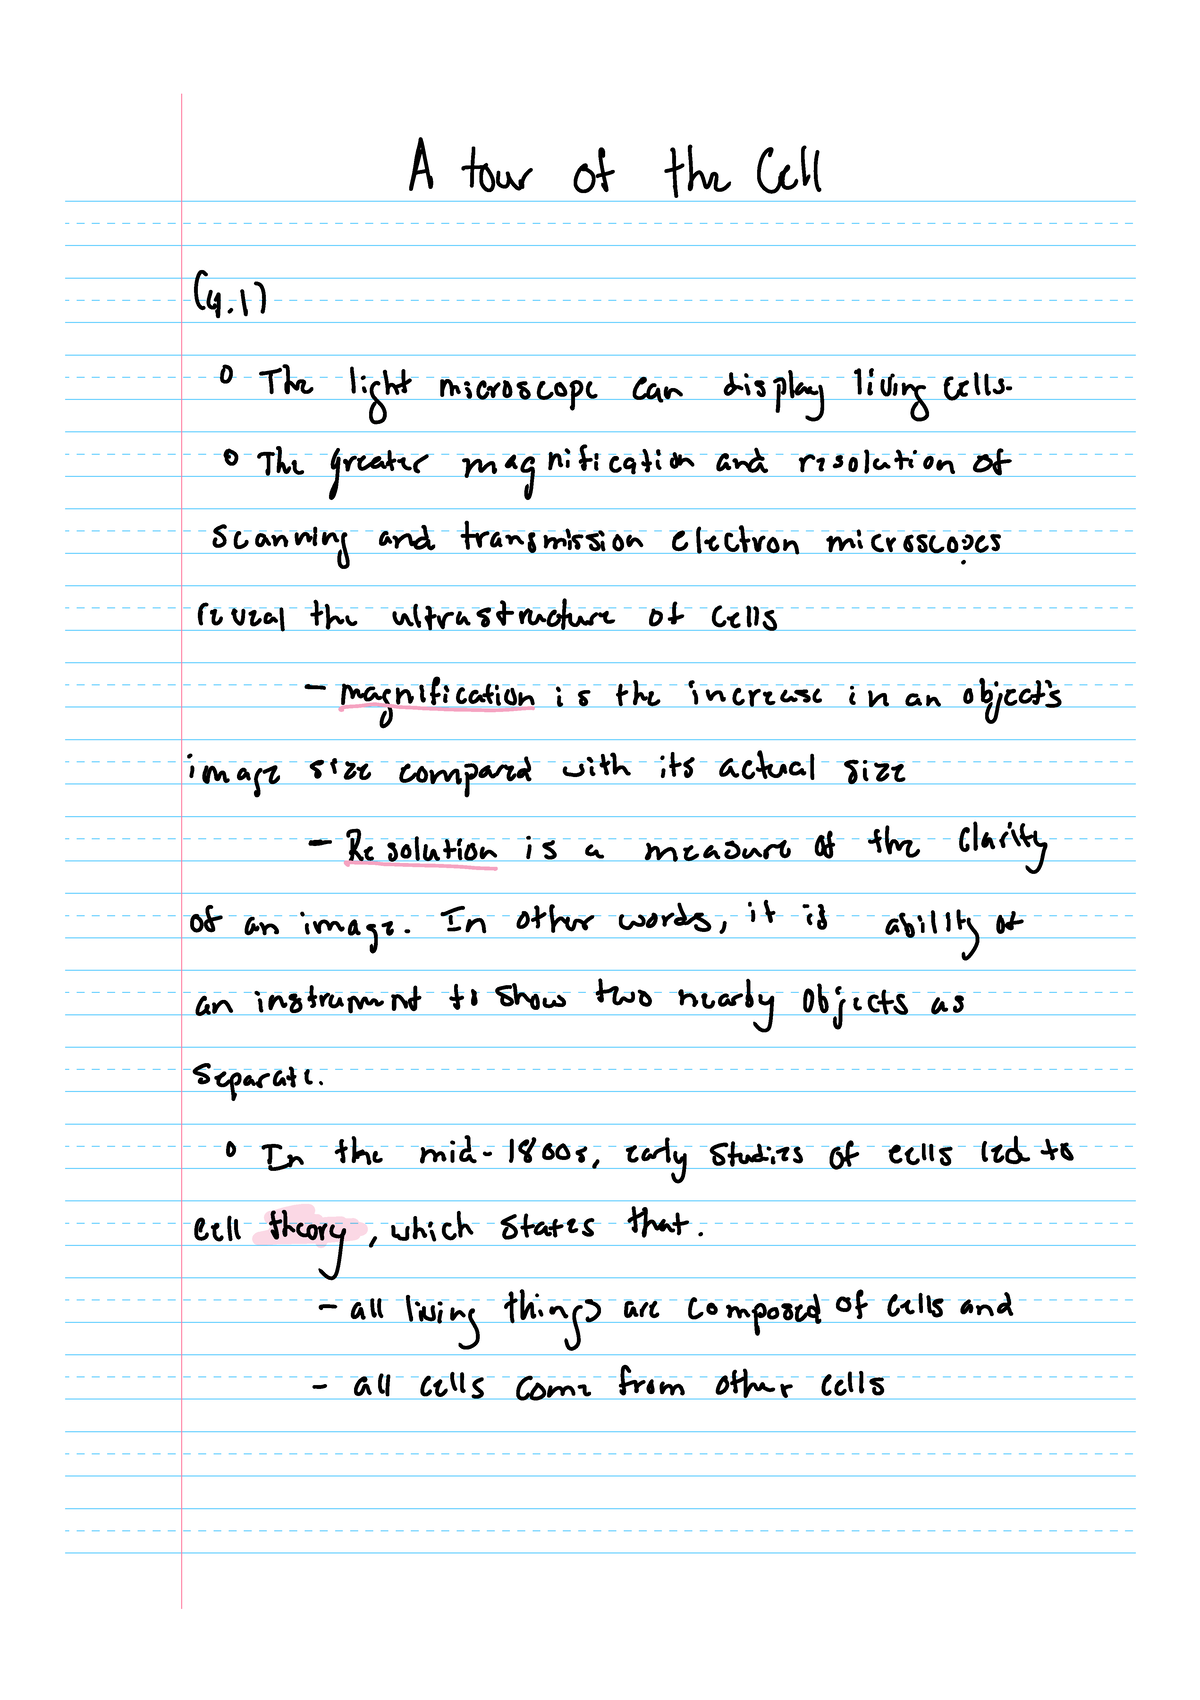 A tour of the Cell
(4.1)
° The light microscope can display living cells.
° The greater magnification and resolution of
scanning and transmission electron microscopes
reveal the ultrastructure of cells
- magnification is the increase in an object's
image size compared with its actual size
- Resolution is a measure of the clarity
of an image. In other words, it is ability of
an instrument to show two nearby objects as
separate.
° In the mid-1800s, early studies of cells led to
cell theory, which states that.
- all living things are composed of cells and
- all cells come from other cells